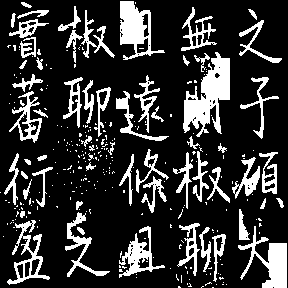 之子碩大
無朋椒聊
且遠條且
椒聊之
實蕃衍盈